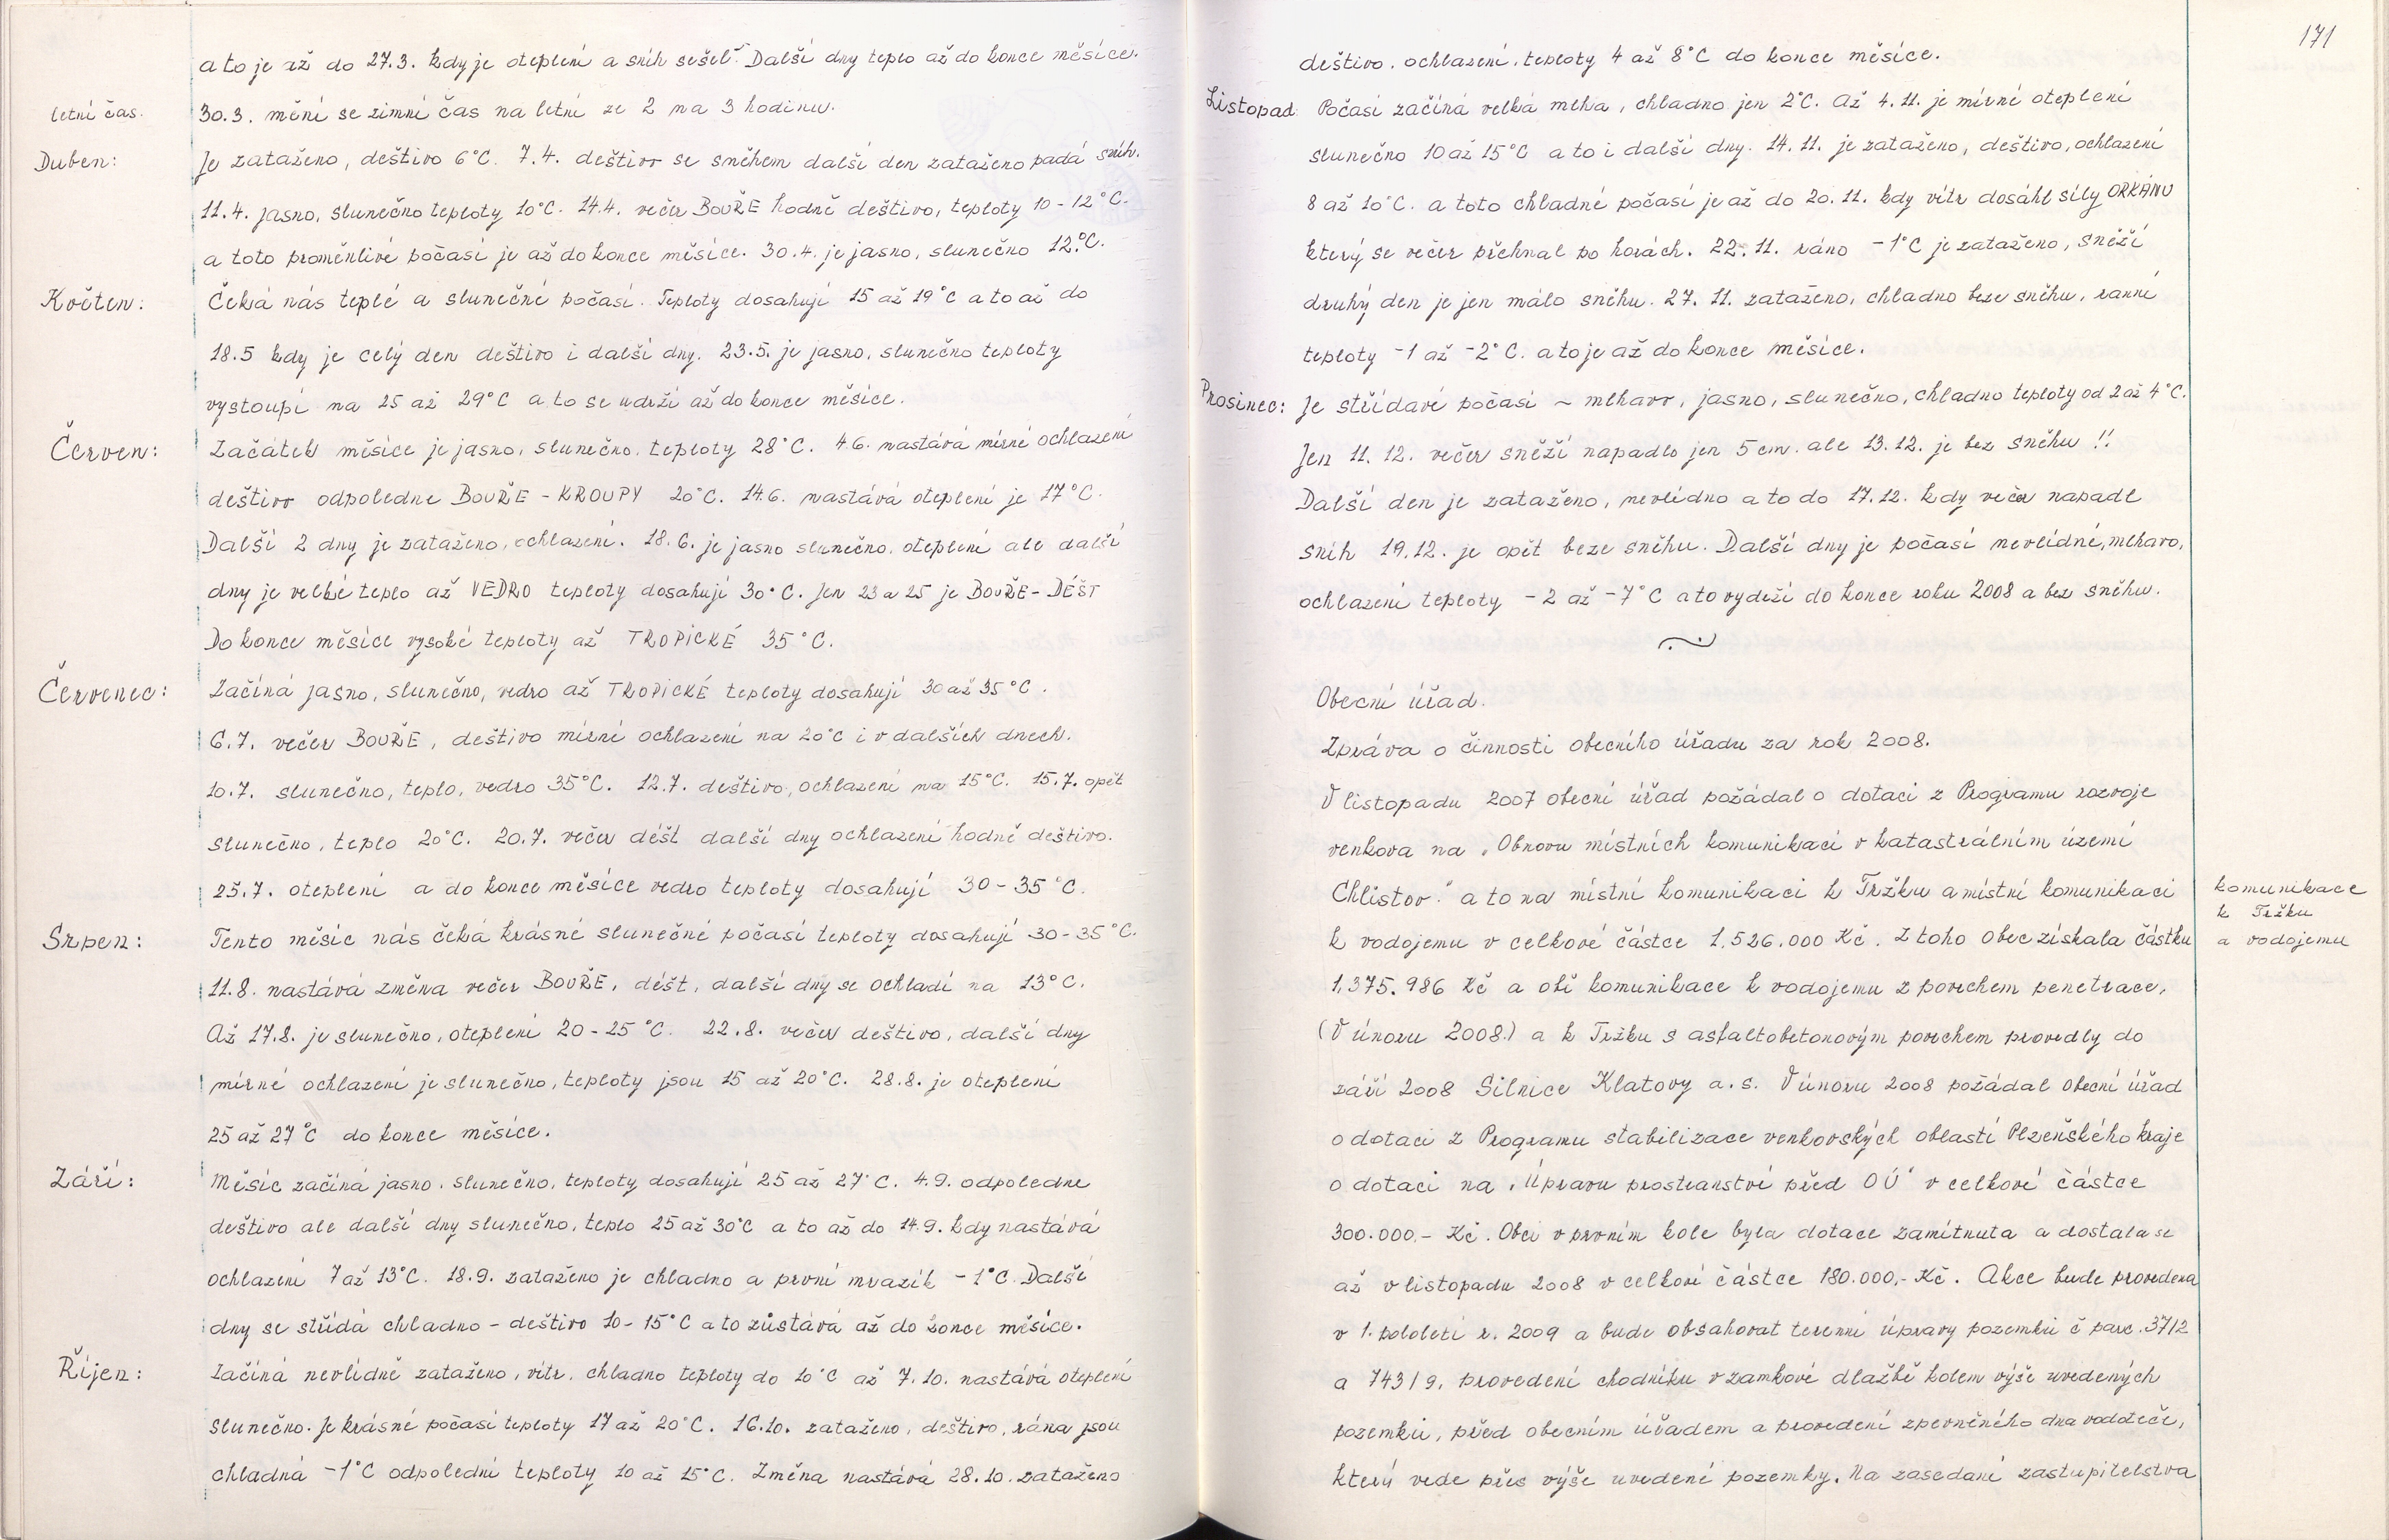 a to je až do 27.3. kdy je oteplení a sníh sešel. Další dny teplo až do konce měsíce.
letní čas. 30.3. mění se zimní čas na letní ze 2 na 3 hodinu.
Duben: Je zataženo, deštivo 6°C. 7.4. deštivo se sněhem další den zataženo padá sníh.
11.4. jasno, slunečno teploty 10°C. 14.4. večer BOUŘE hodně deštivo, teploty 10-12°C.
a toto proměnlivé počasí je až do konce měsíce. 30.4. je jasno, slunečno 12°C.
Květen: Čeká nás teplé a slunečné počasí. Teploty dosahují 15 až 19°C a to až do
18.5 kdy je celý den deštivo i další dny. 23.5. je jasno, slunečno teploty
vystoupí na 25 až 29°C a to se udrží až do konce měsíce.
Červen: Začátek měsíce je jasno, slunečno, teploty 28°C. 4.6. nastává mírné ochlazení
deštivo odpoledne BOUŘE - KROUPY 20°C. 14.6. nastává oteplení je 17°C.
Další 2 dny je zataženo, ochlazení. 18.6. je jasno slunečno, oteplení ale další
dny je velké teplo až VEDRO teploty dosahují 30°C. Jen 23 a 25 je BOUŘE - DÉŠT
Do konce měsíce vysoké teploty až TROPICKÉ 35°C.
Červenec: Začíná jasno, slunečno, vedro až TROPICKÉ teploty dosahují 30 až 35°C.
6.7. večer BOUŘE, deštivo mírné ochlazení na 20°C i v dalších dnech.
10.7. slunečno, teplo, vedro 35°C. 12.7. deštivo, ochlazení na 15°C. 15.7. opět
slunečno, teplo 20°C. 20.7. večer déšt další dny ochlazení hodně deštivo.
25.7. oteplení a do konce měsíce vedro teploty dosahují 30-35°C.
Srpen: Tento měsíc nás čeká krásné slunečné počasí teploty dosahují 30-35°C.
11.8. nastává změna večer BOUŘE, déšt, další dny se ochladí na 13°C.
Až 17.8. je slunečno, oteplení 20-25°C. 22.8. večer deštivo, další dny
mírné ochlazení je slunečno, teploty jsou 15 až 20°C. 28.8. je oteplení
25 až 27°C do konce měsíce.
Září: Měsíc začíná jasno, slunečno, teploty dosahují 25 až 27°C. 4.9. odpoledne
deštivo ale další dny slunečno, teplo 25 až 30°C a to až do 14.9. kdy nastává
ochlazení 7 až 13°C. 18.9. zataženo je chladno a první mrazík -1°C. Další
dny se střídá chladno - deštivo 10-15°C a to zůstává až do konce měsíce.
Říjen: Začíná nevlídně zataženo, vítr, chladno teploty do 10°C až 7.10. nastává oteplení
slunečno. Je krásné počasí teploty 17 až 20°C. 16.10. zataženo, deštivo, rána jsou
chladná -1°C odpolední teploty 10 až 15°C. Změna nastává 28.10. zataženo
171
deštivo, ochlazení, teploty 4 až 8°C do konce měsíce.
Listopad: Počasí začíná velká mlha, chladno jen 2°C. Až 4.11. je mírné oteplení
slunečno 10 až 15°C a to i další dny. 14.11. je zataženo, deštivo, ochlazení
8 až 10°C. a toto chladné počasí je až do 20.11. kdy vítr dosáhl síly ORKÁNU
který se večer přehnal po horách. 22.11. ráno -1°C je zataženo, sněží
druhý den je jen málo sněhu. 27.11. zataženo, chladno beze sněhu, ranní
teploty -1 až -2°C. a to je až do konce měsíce.
Prosinec: Je střídavé počasí ~ mlhavo, jasno, slunečno, chladno teploty od 2 až 4°C.
Jen 11.12. večer sněží napadlo jen 5 cm. ale 13.12. je bez sněhu !!
Další den je zataženo, nevlídno a to do 17.12. kdy večer napadl
sníh 19.12. je opět beze sněhu. Další dny je počasí nevlídné, mlhavo,
ochlazení teploty -2 až -7°C a to vydrží do konce roku 2008 a bez sněhu.
Obecní úřad.
Zpráva o činnosti obecního úřadu za rok 2008.
V listopadu 2007 obecní úřad požádal o dotaci z Programu rozvoje
venkova na „Obnovu místních komunikací v katastrálním území
Chlistov." a to na místní komunikaci k Tržku a místní komunikaci
k vodojemu v celkové částce 1.526.000 Kč. Z toho obec získala částku
komunikace
k Tržku
a vodojemu
1.375.986 Kč a obě komunikace k vodojemu z povrchem penetrace,
(V únoru 2008.) a k Tržku s asfaltobetonovým povrchem provedly do
září 2008 Silnice Klatovy a.s. V únoru 2008 požádal obecní úřad
o dotaci z Programu stabilizace venkovských oblastí Plzeňského kraje
o dotaci na „Úpravu prostranství před OÚ" v celkové částce
300.000,- Kč. Obci v prvním kole byla dotace zamítnuta a dostala se
až v listopadu 2008 v celkové částce 180.000,- Kč. Akce bude provedena
v 1. pololetí r. 2009 a bude obsahovat terenní úpravy pozemků č parc. 37/2
a 743/9, provedení chodníku v zamkové dlažbě kolem výše uvedených
pozemků, před obecním úřadem a provedení zpevněného dna vodoteče,
který vede přes výše uvedené pozemky. Na zasedání zastupitelstva